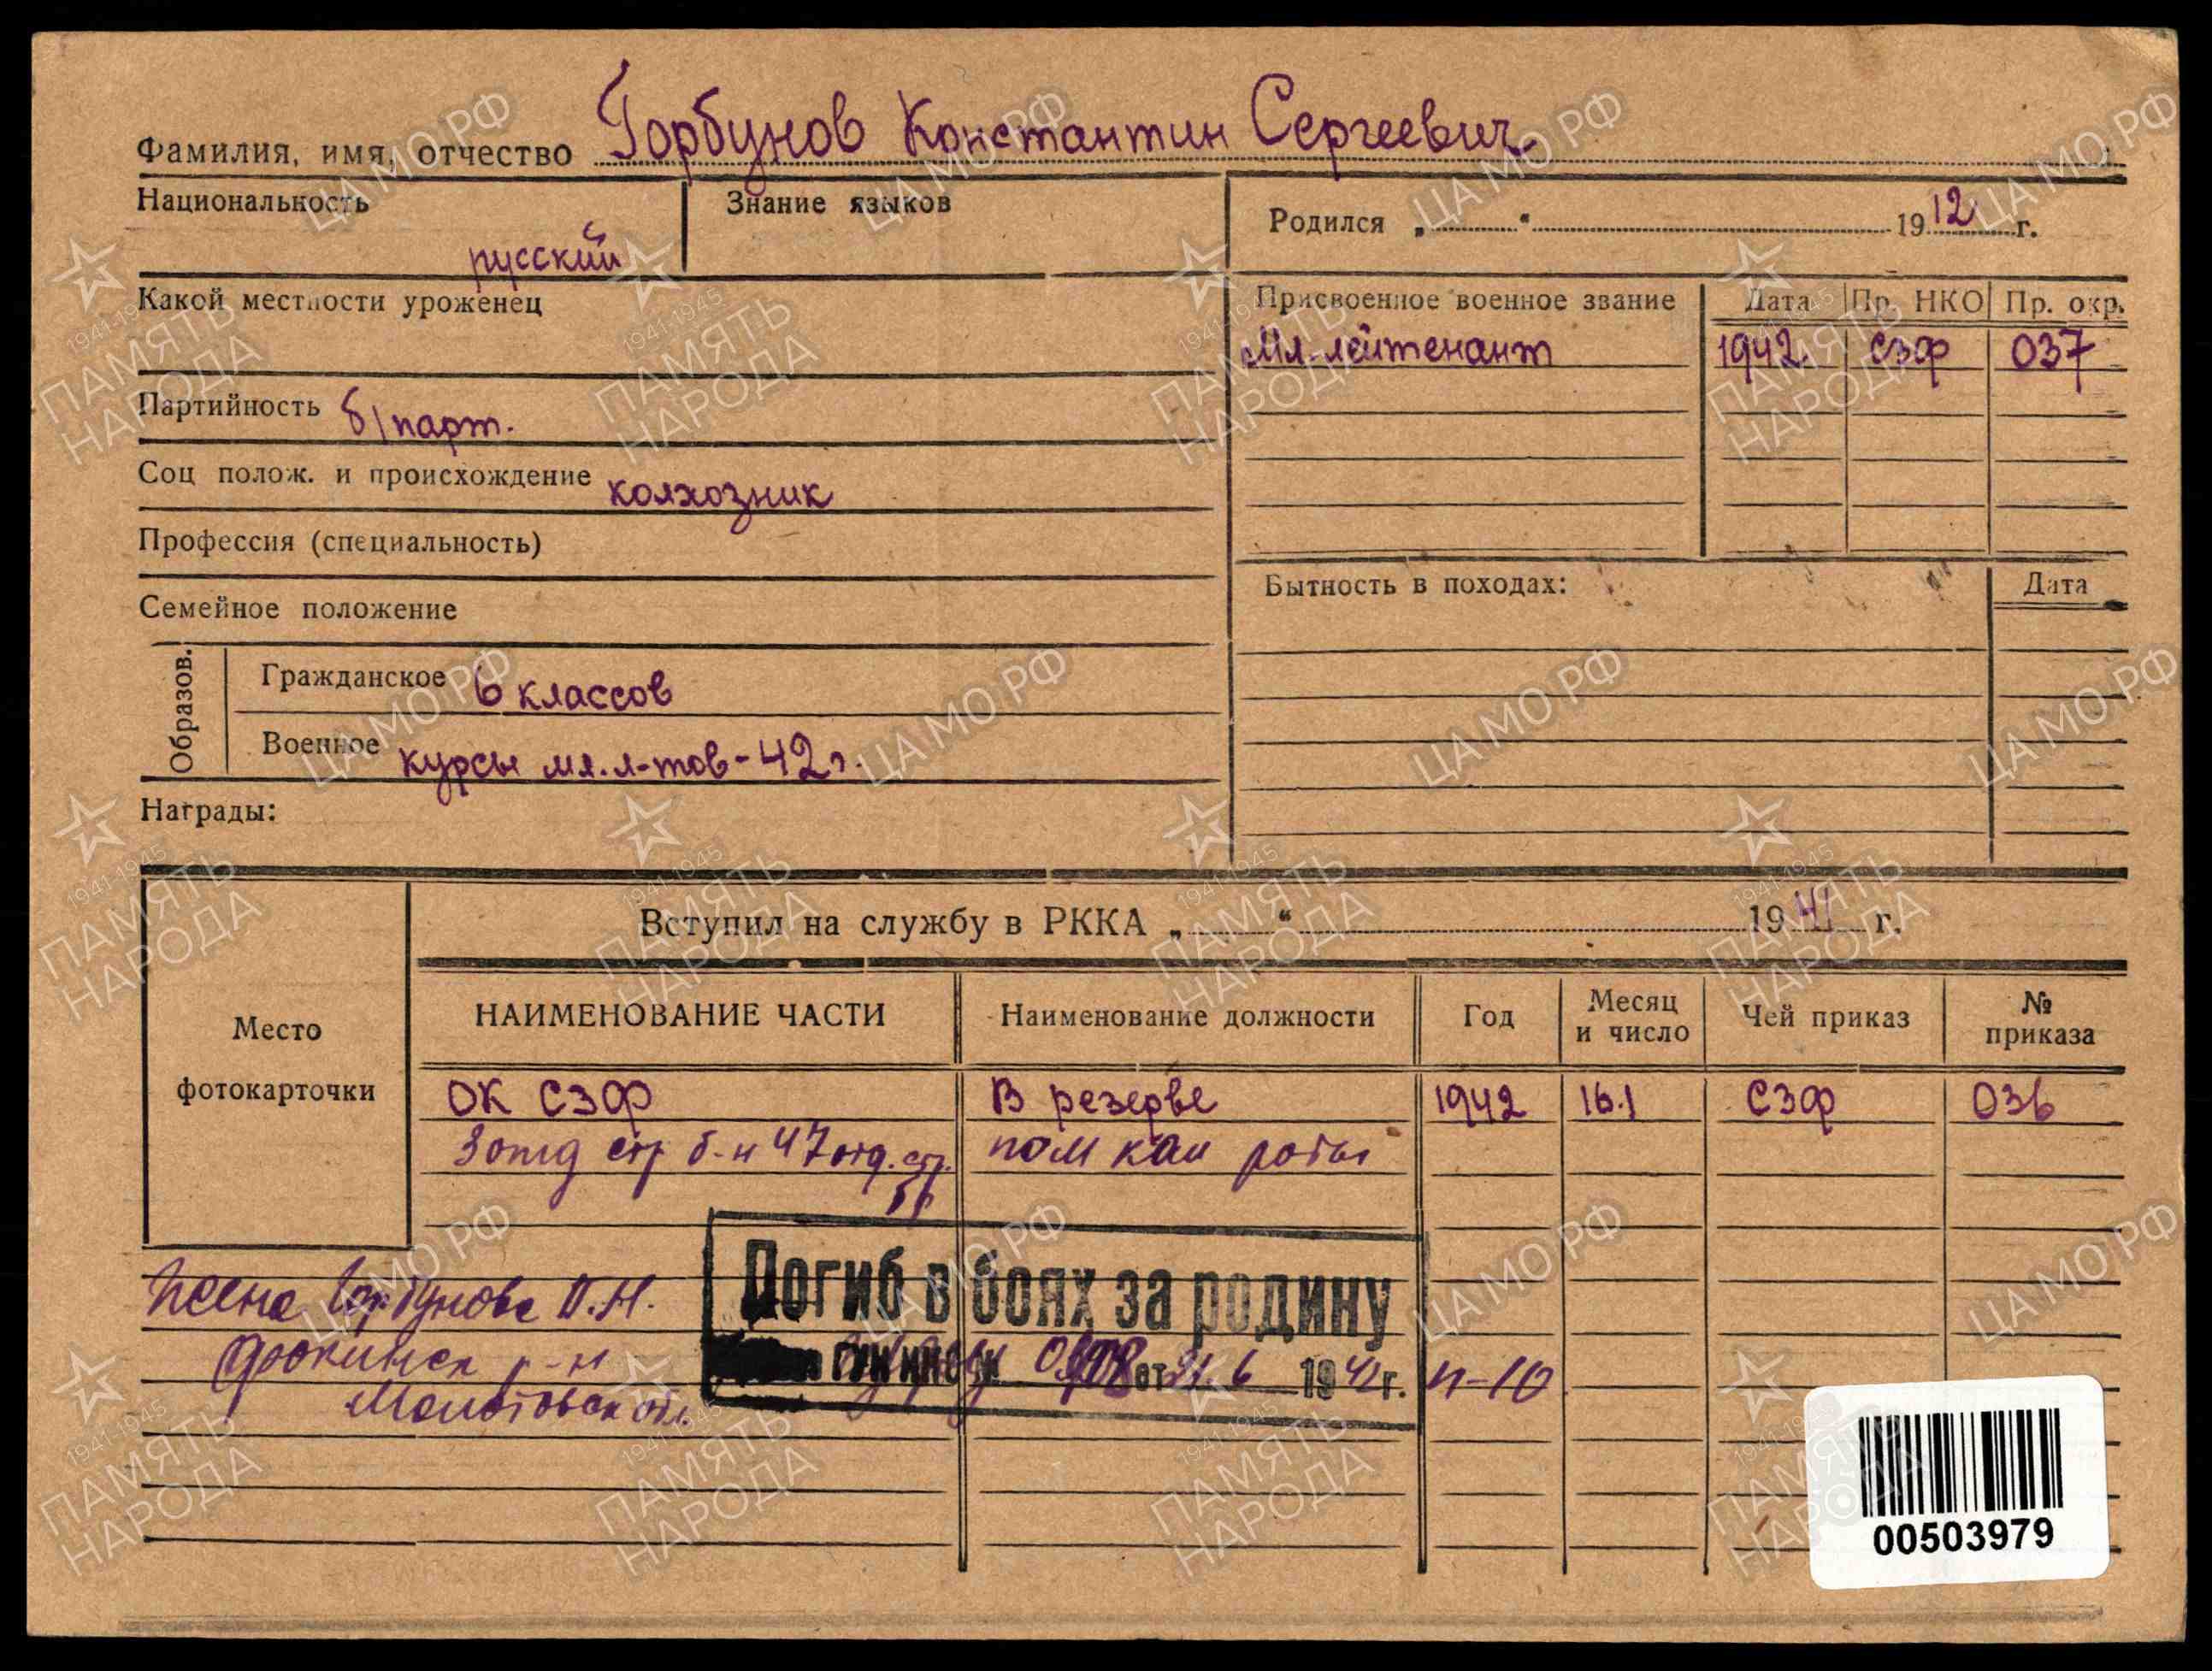 Фамилия, имя, отчество Горбунов Константин Сергеевич
Национальность русский
Знание языков
Родился „ “ 1912 г.
Какой местности уроженец
Присвоенное военное звание Дата Пр. НКО Пр. окр.
Мл. лейтенант 1942 СЗФ 037
Партийность б/парт.
Соц полож. и происхождение колхозник
Профессия (специальность)
Бытность в походах: Дата
Семейное положение
Образов.
Гражданское 6 классов
Военное курсы мл. л-тов - 42 г.
Награды:
Вступил на службу в РККА „ “ 1941 г.
Место
фотокарточки
НАИМЕНОВАНИЕ ЧАСТИ Наименование должности Год Месяц и число Чей приказ № приказа
ОК СЗФ В резерве 1942 16.1 СЗФ 036
3 отд стр б-н 47 отд. стр. бр пом ком роты
Погиб в боях за родину
от 21.6 1942 г. п-10
Жена Горбунова
р-н
Молотовск обл.
00503979
ЦА МО РФ
1941-1945
ПАМЯТЬ
НАРОДА